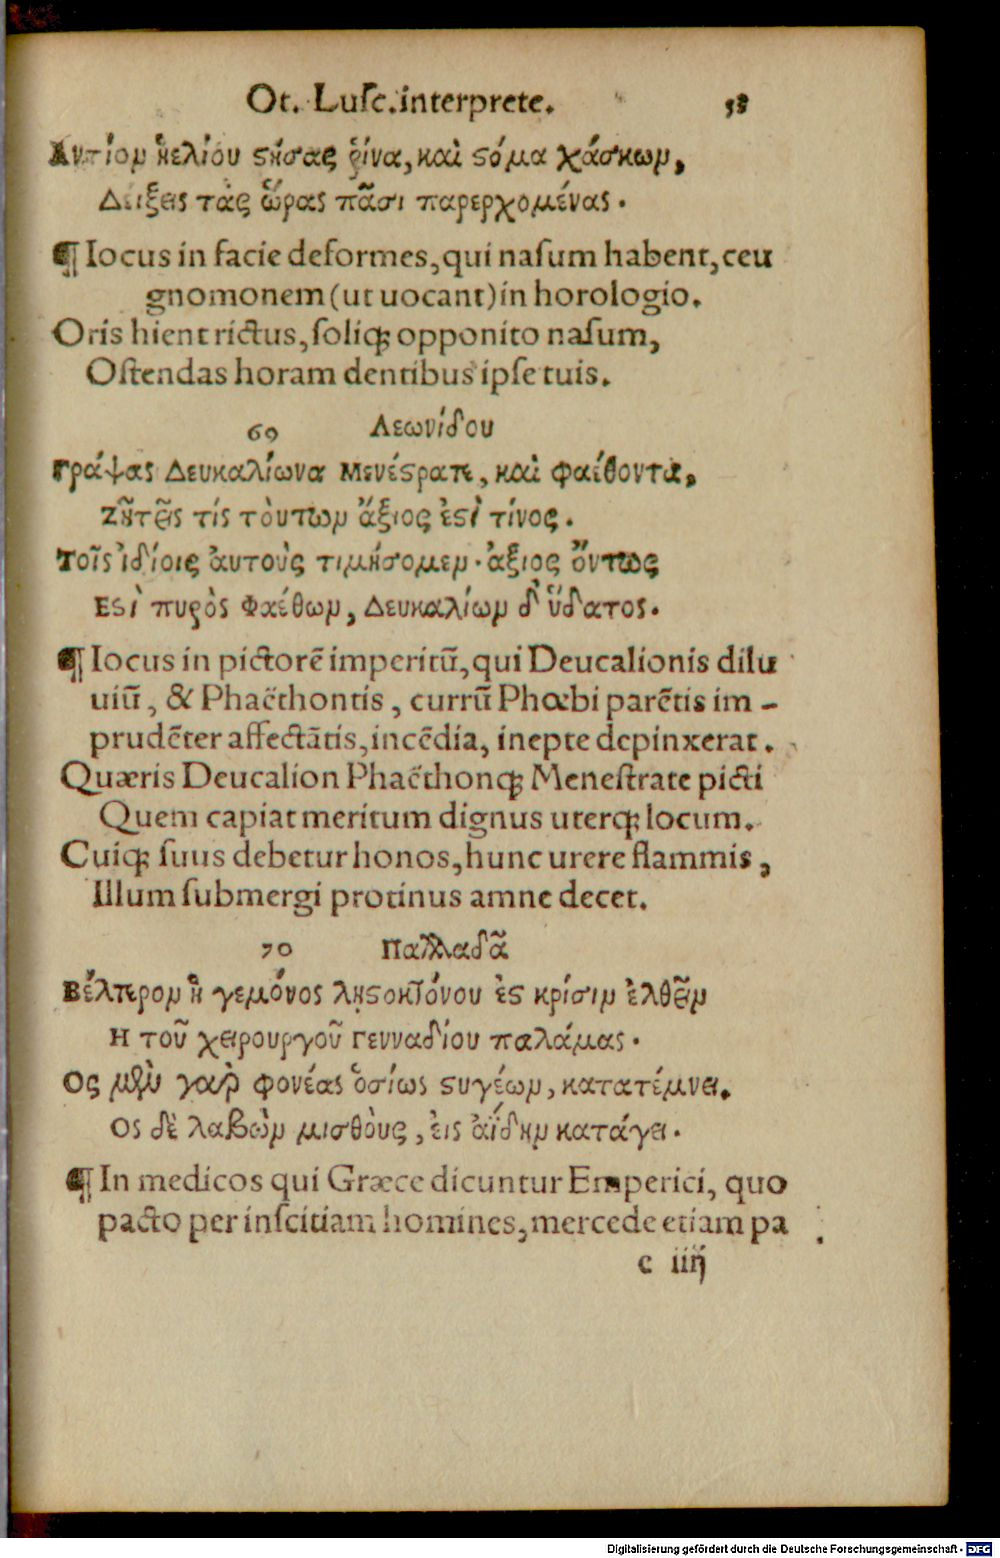 Ot. Luſc. interprete. 38
Αντίον ἠελίου ϛήσας ῥίνα, καὶ ϛόμα χάσκων,
Δείξεις τὰς ὥρας πᾶσι παρερχομένας.
¶ Iocus in facie deformes, qui naſum habent, ceu
gnomonem (ut uocant) in horologio.
Oris hient rictus, ſoliqꝫ opponito naſum,
Oſtendas horam dentibus ipſe tuis.
69 Λεωνίδου
Γράψας Δευκαλίωνα Μενέϛρατε, καὶ φαέθοντα,
Ζητεῖς τίς τὸυτων ἄξιος ἐϛὶ τίνος.
Τοῖς ἰδίοις ἀυτοὺς τιμήσομεν. ἀξιος ὄντως
Εϛὶ πυρὸς Φαέθων, Δευκαλίων δ' ὕδατος.
¶ Iocus in pictorē imperitū, qui Deucalionis dilu
uiū, & Phaëthontis, currū Phœbi parētis im-
prudēter affectātis, incēdia, inepte depinxerat.
Quæris Deucalion Phaëthonqꝫ Meneſtrate picti
Quem capiat meritum dignus uterqꝫ locum.
Cuiqꝫ ſuus debetur honos, hunc urere flammis,
Illum ſubmergi protinus amne decet.
70 Παλλαδᾶ
Βέλτερον ἢ γεμόνος ληϛοκτόνου ἐς κρίσιν ἐλθεῖν
Η τοῦ χειρουργοῦ Γενναδίου παλάμας.
Ος μὲν γαρ φονέας ὁσίως ϛυγέων, κατατέμνει.
Ος δὲ λαβὼν μισθοὺς, ἐις ἀΐδην κατάγει.
¶ In medicos qui Græce dicuntur Emperici, quo
pacto per inſcitiam homines, mercede etiam pa
c iiij
Digitalisierung gefördert durch die Deutsche Forschungsgemeinschaft - DFG